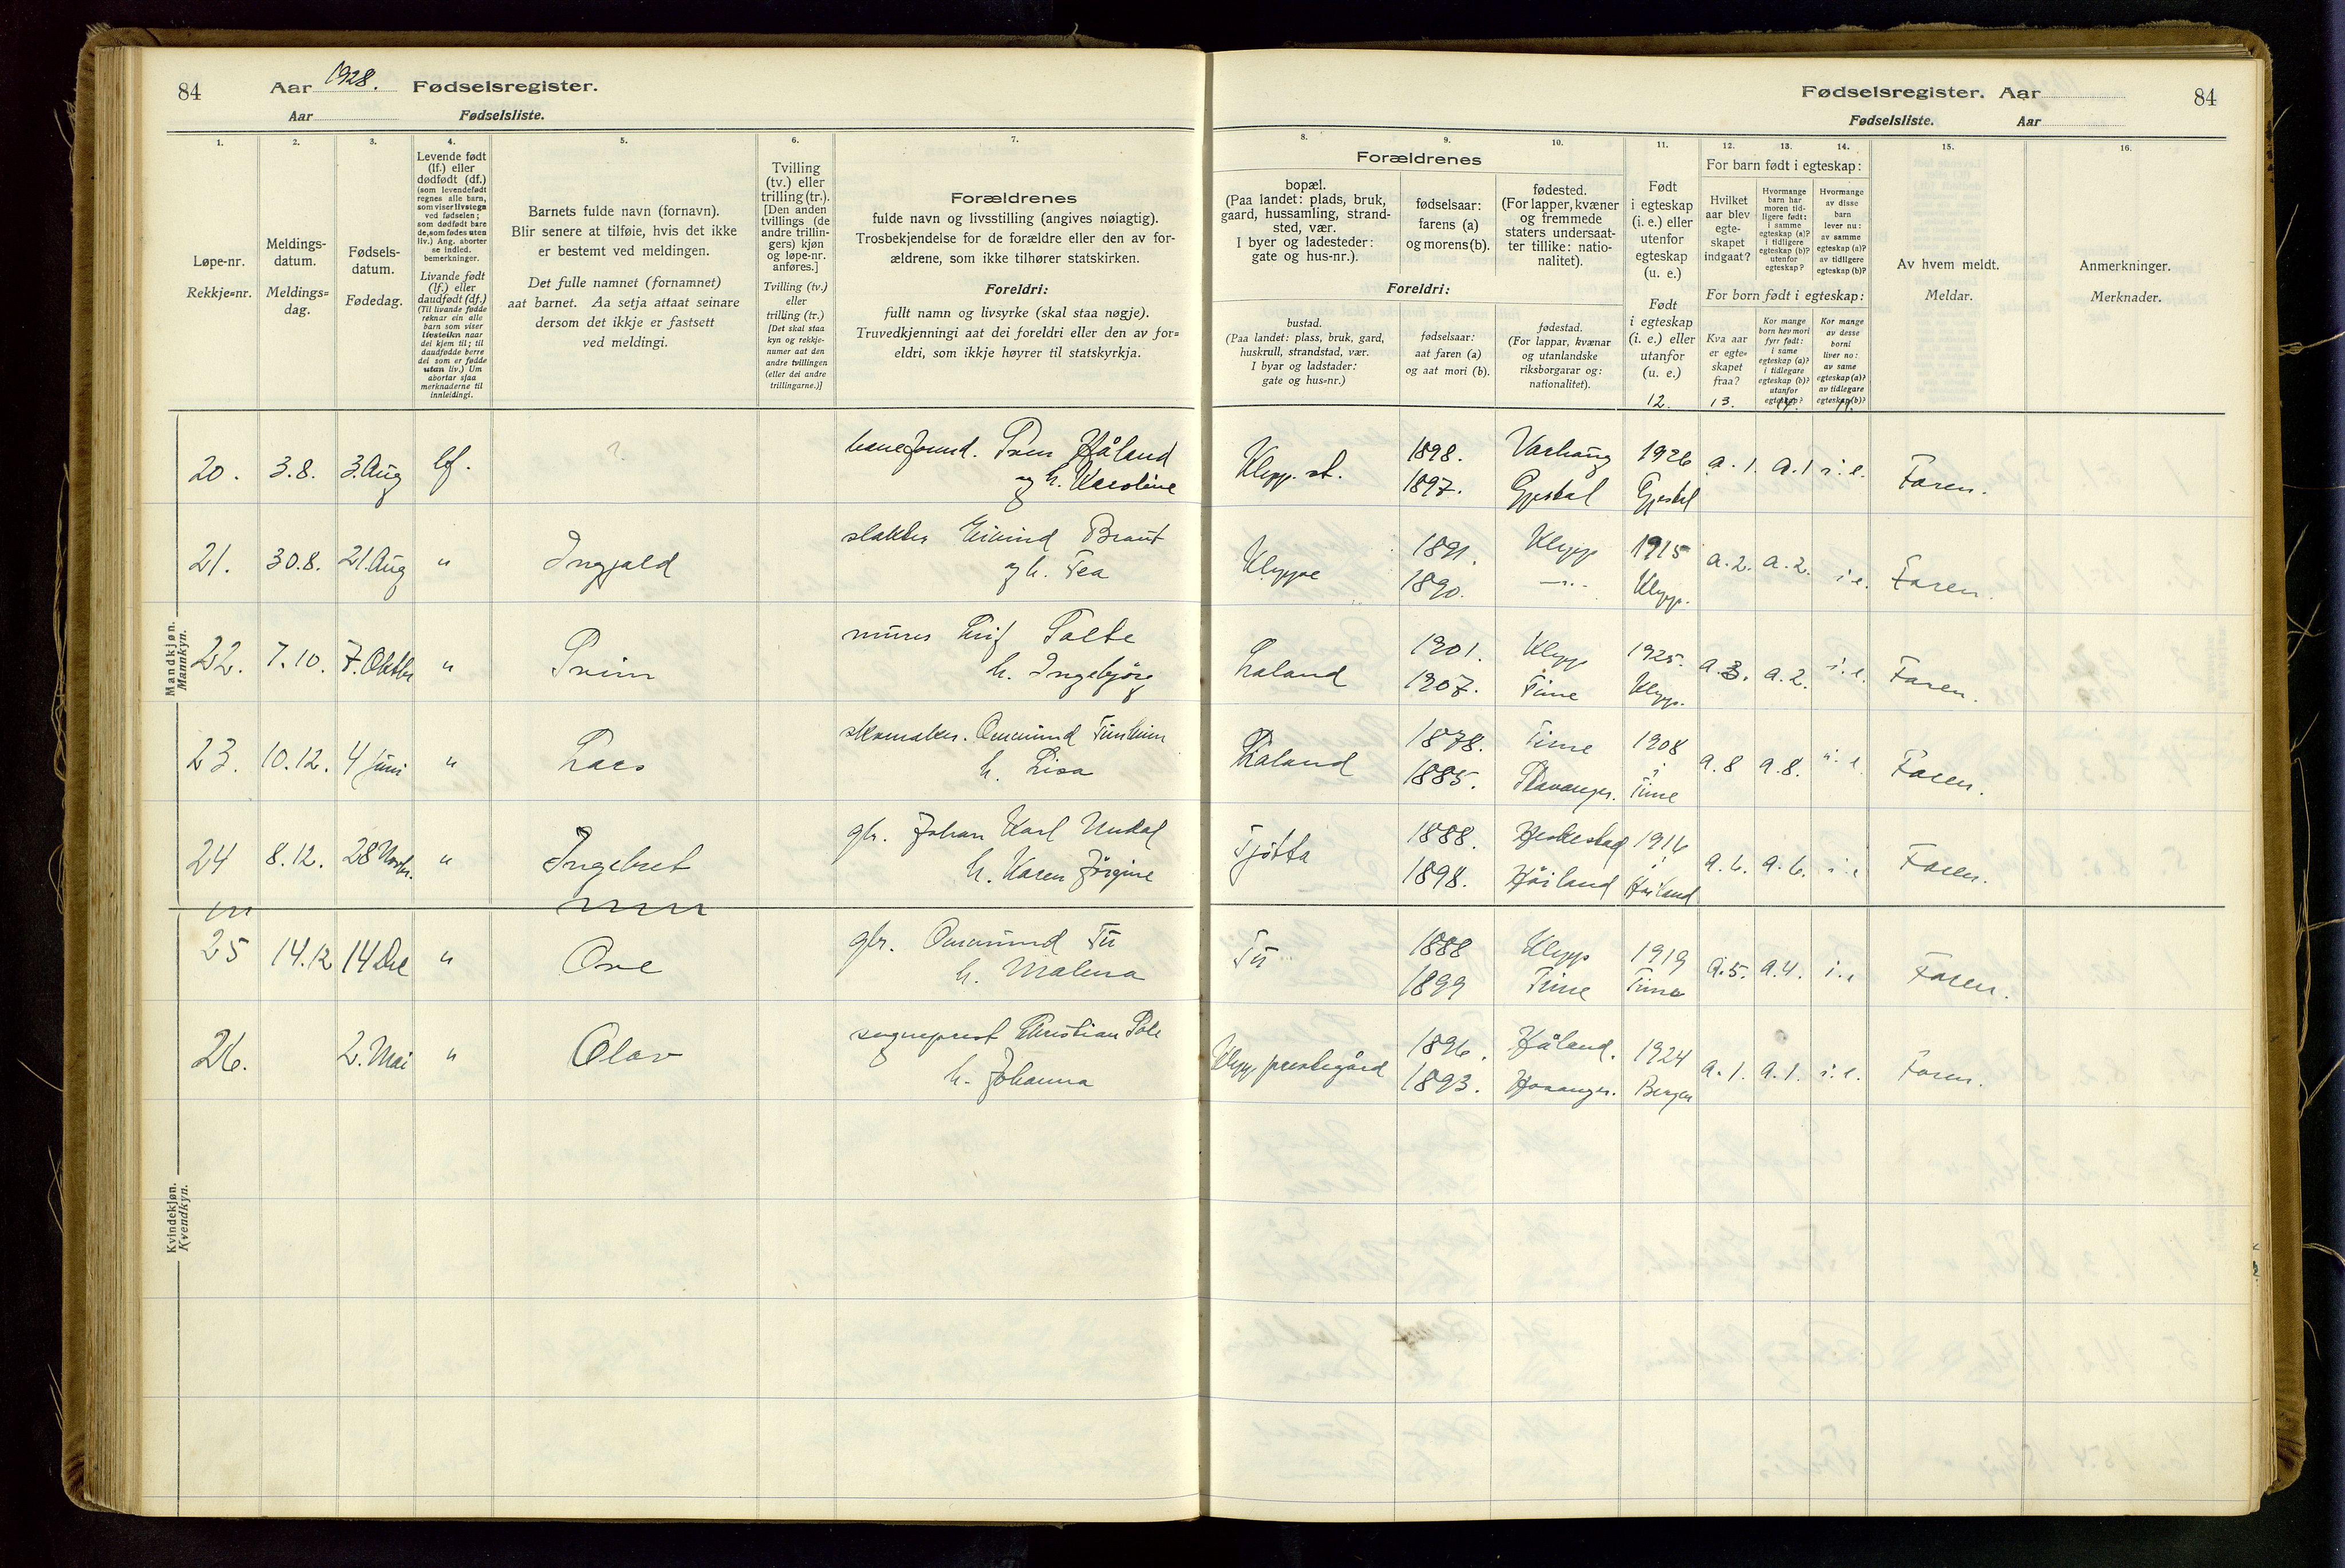 84
Aar 1928. Fødselsregister.
Aar Fødselsliste.
1.
2.
3.
4.
5.
6.
7.
Løpe-nr.
Rekkje=nr.
Meldings-
datum.
Meldings=
dag.
Fødsels-
datum.
Fødedag.
Levende født
(lf.) eller
dødfødt (df.)
(som levendefødt
regnes alle barn,
som viser livstegn
ved fødselen;
som dødfødt bare
de, som fødes uten
liv.) Ang. aborter
se indled.
bemerkninger.
Livande født
(lf.) eller
daudfødt (df.)
(Til livande fødde
reknar ein alle
barn som viser
livsteikn naar
dei kjem til; til
daudfødde berre
dei som er fødde
utan liv.) Um
abortar sjaa
merknaderne til
innleidingi.
Barnets fulde navn (fornavn).
Blir senere at tilføie, hvis det ikke
er bestemt ved meldingen.
Det fulle namnet (fornamnet)
aat barnet. Aa setja attaat seinare
dersom det ikkje er fastsett
ved meldingi.
Tvilling
(tv.) eller
trilling (tr.).
[Den anden
tvillings (de
andre trillin-
gers) kjøn
og løpe-nr.
anføres.]
Tvilling (tv.)
eller
trilling (tr.)
[Det skal staa
kyn og rekkje-
numer aat den
andre tvillingen
(eller dei andre
trillingarne.)]
Forældrenes
fulde navn og livsstilling (angives nøiagtig).
Trosbekjendelse for de forældre eller den av for-
ældrene, som ikke tilhører statskirken.
Foreldri:
fullt namn og livsyrke (skal staa nøgje).
Truvedkjenningi aat dei foreldri eller den av for=
eldri, som ikkje høyrer til statskyrkja.
Mandkjøn.
Mannkyn.
20. 3.8. 3.Aug lf. ?
Sven Håland
og h. Karoline
21. 30.8. 21.Aug " Ingjald
slakter Eivind Braut
og h. Tea
22. 7.10. 7.Oktbr " Svein
murer Leif Salte
h. Ingebjørg
23. 10.12. 4 juni " Lars
skomaker. Ommund
h. Lisa
24 8.12. 28 Novbr. " Ingebret
gbr. Johan Karl Undal
h. Karen Jörgine
25 14.12 14 Des " Ove
gbr. Ommund Tu
h. Malena
26. 2. Mai " Olav
sogneprest Christian
h. Johanna
Kvindekjøn.
Kvendkyn.
Fødselsregister. Aar
Fødselsliste. Aar
84
8.
9.
10.
11.
12.
13.
14.
15.
16.
Forældrenes
bopæl.
(Paa landet: plads, bruk,
gaard, hussamling, strand-
sted, vær.
I byer og ladesteder:
gate og hus-nr.).
fødselsaar:
farens (a)
og morens (b).
fødested.
(For lapper, kvæner
og fremmede
staters undersaat-
ter tillike: natio-
nalitet).
Foreldri:
bustad.
(Paa landet: plass, bruk, gard,
huskrull, strandstad, vær.
I byar og ladstader:
gate og hus=nr.)
fødselsaar:
aat faren (a)
og aat mori (b).
fødestad.
(For lappar, kvænar
og utanlandske
riksborgarar og:
nationalitet).
Født
i egteskap
(i. e.) eller
utenfor
egteskap
(u. e.)
Født
i egteskap
(i. e.) eller
utanfor
(u. e.)
12.
For barn født i egteskap:
Hvilket
aar blev
egte-
skapet
indgaat?
Hvormange
barn har
moren tid-
ligere født:
i samme
egteskap (a)?
i tidligere
egteskap (b)?
utenfor
egteskap?
Hvormange
av disse
barn
lever nu:
av samme
egteskap (a)?
av tidligere
egteskap (b)?
For born født i egteskap:
Kva aar
er egte=
skapet
fraa?
13.
Kor mange
born hev mori
fyrr født:
i same
egteskap (a)?
i tidlegare
egteskap (b)?
utanfor
egteskap?
Kor mange
av desse
borni
liver no:
av same
egteskap (a)?
av tidlegare
egteskap (b)?
Av hvem meldt.
Meldar.
Anmerkninger.
Merknader.
Klepp. st. 1898. Varhaug 1926 a.1. a.1 i.e. Faren.
1897. Gjestal Gjestal
Kleppe 1891. Klepp 1915 a.2. a.2. i.e. Faren.
1890. —"— Klepp.
Laland 1901. Klepp 1925. a.3. a.2. i.e. Faren.
1907. Time Klepp.
Laland 1878. Time 1908 a.8 a.8. i.e. Faren.
1885. Stavanger. i Time
Tjøtta 1888. Heskestad 1916 a.6. a.6. i.e Faren.
1898. Høiland i Høiland
Tu 1888 Klepp 1919 a.5. a.4. i.e Faren.
1899 Time Time
Klepp prestegård 1896. Håland. 1924 a.1. a.1. i.e. Faren.
1893. Bergen